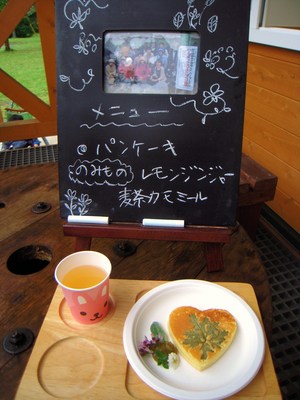 メニュー
◎ パンケーキ
のみもの レモンジンジャー
麦茶カモミール